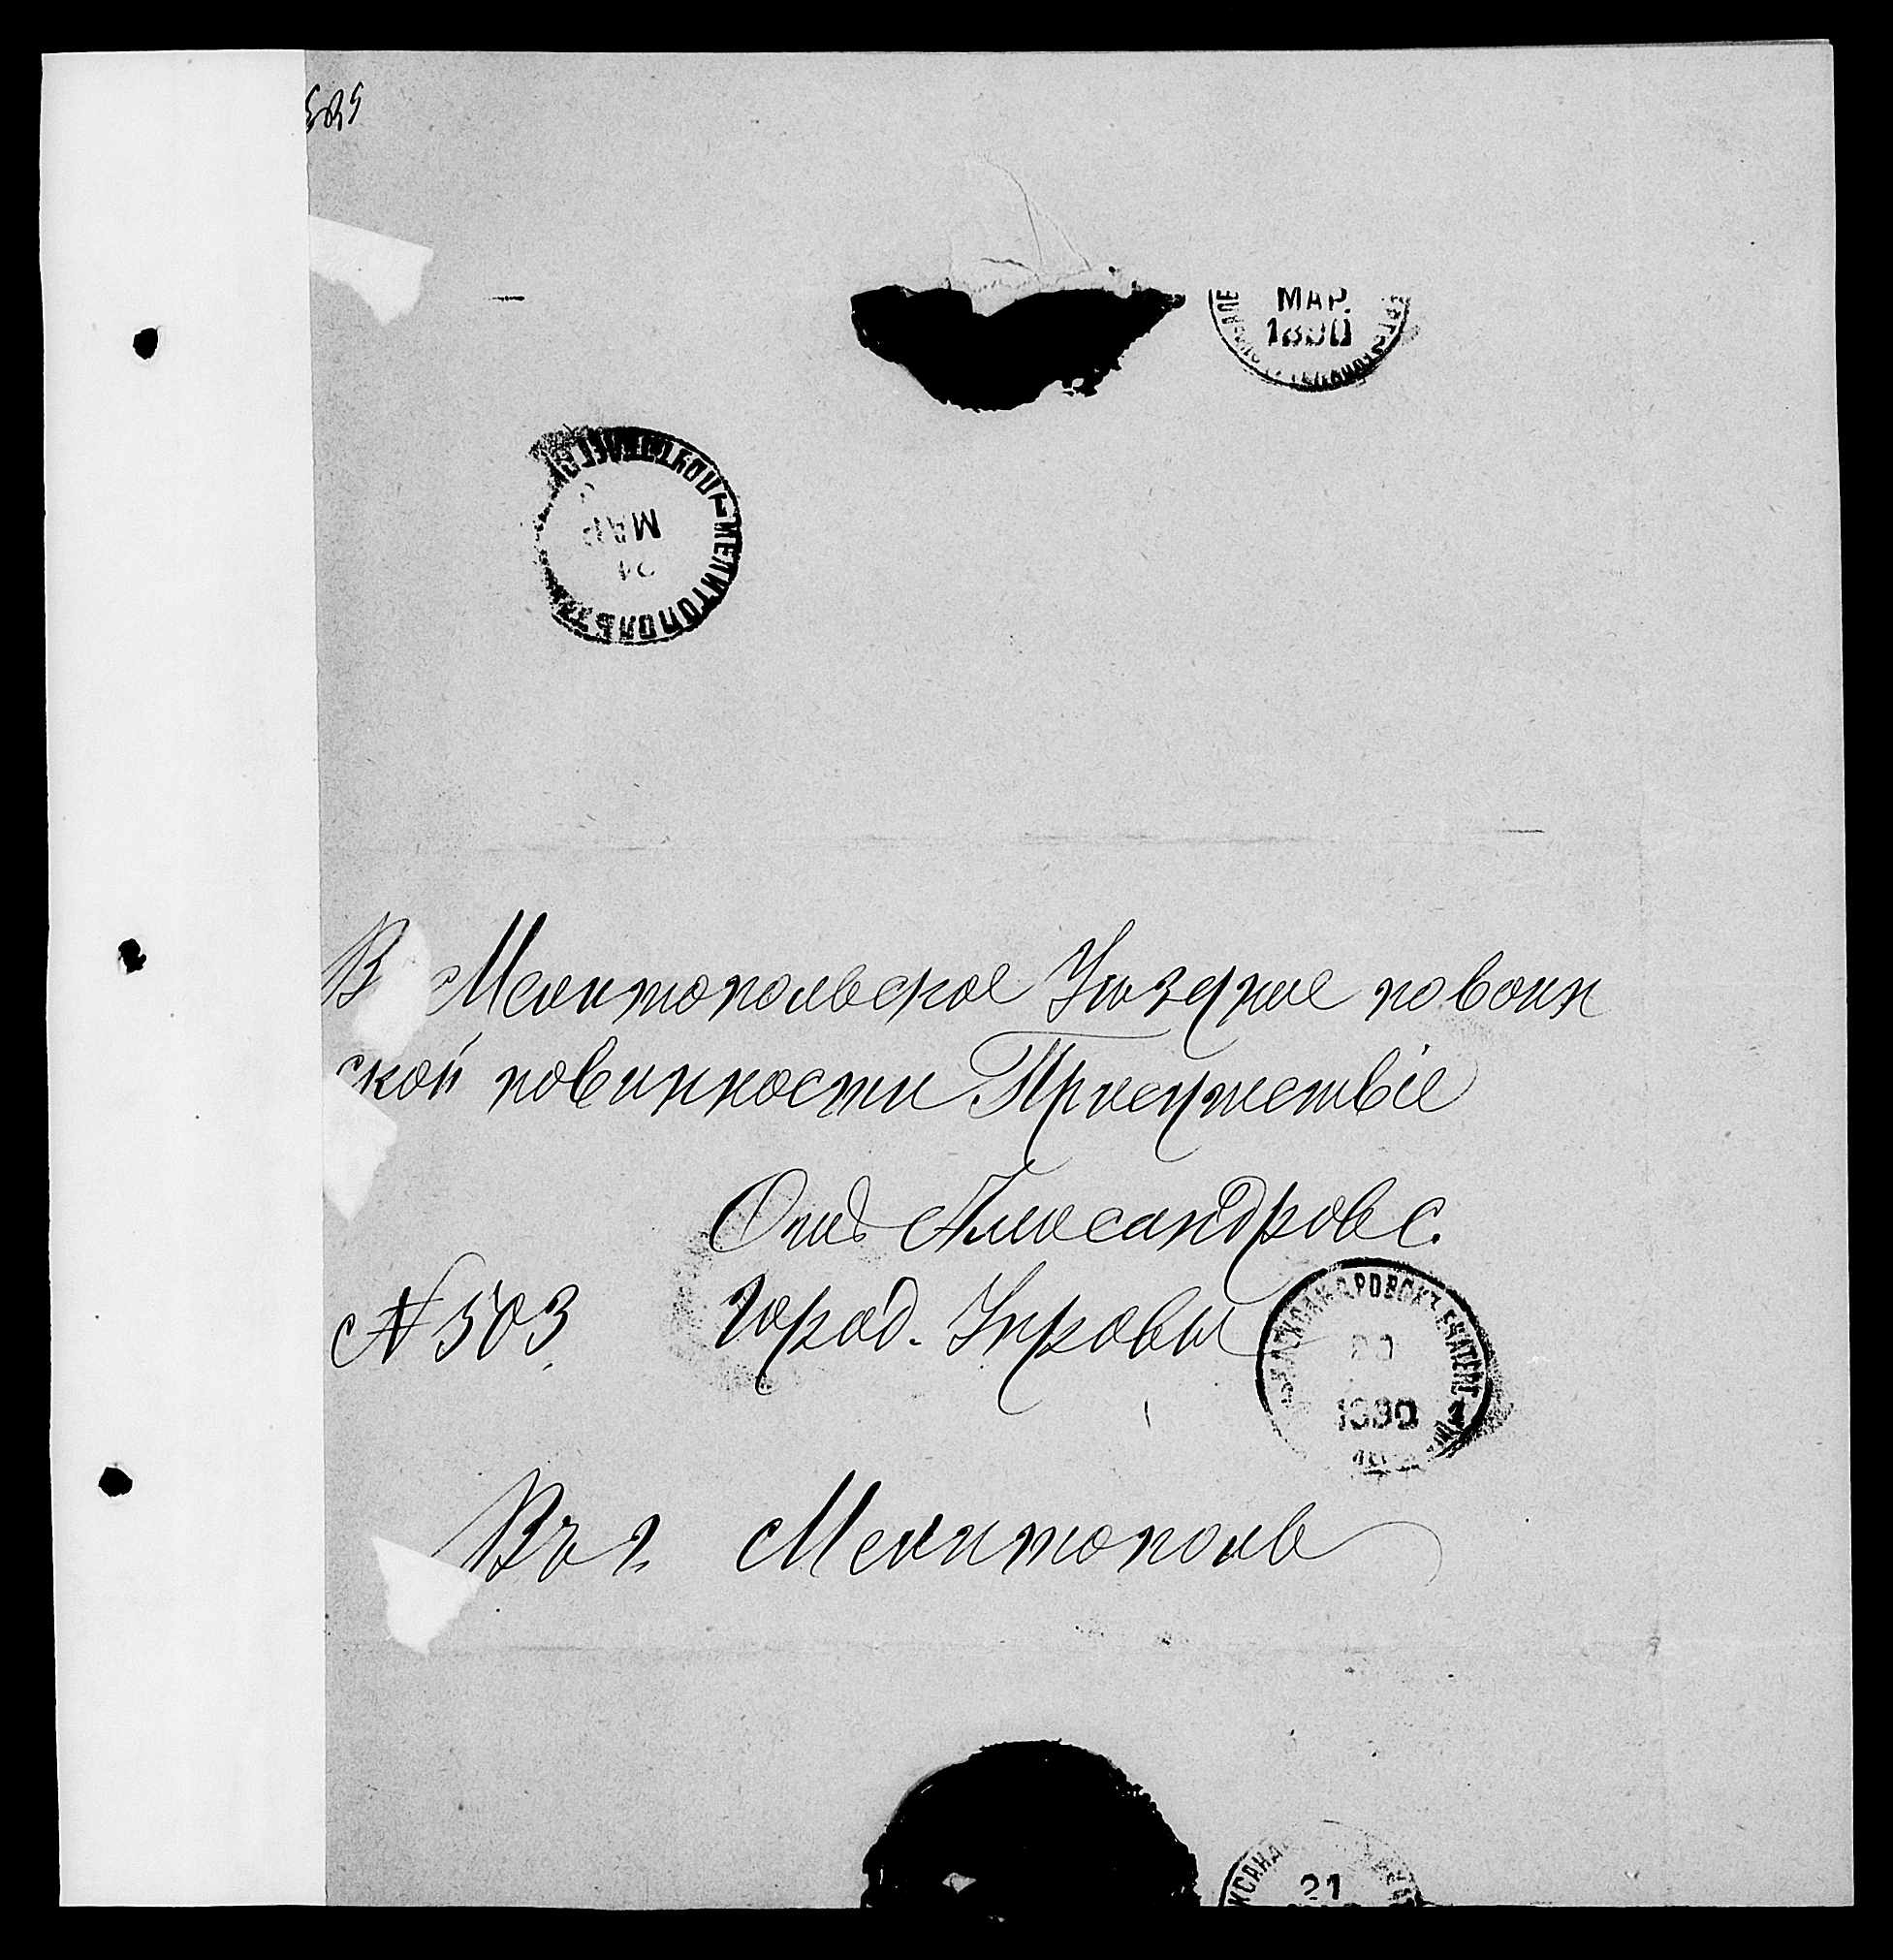 585
МАР.
1890
МЕЛИТОПОЛЬ
МАР
24
В Мелитопольское Уѣздное по воин
ской повинности Присутствіе
Отъ Александровс.
№ 503 Город. Управы
АЛЕКСАНДРОВСКЪ ЕКАТЕР
20
1890
Въ г. Мелитополь
21